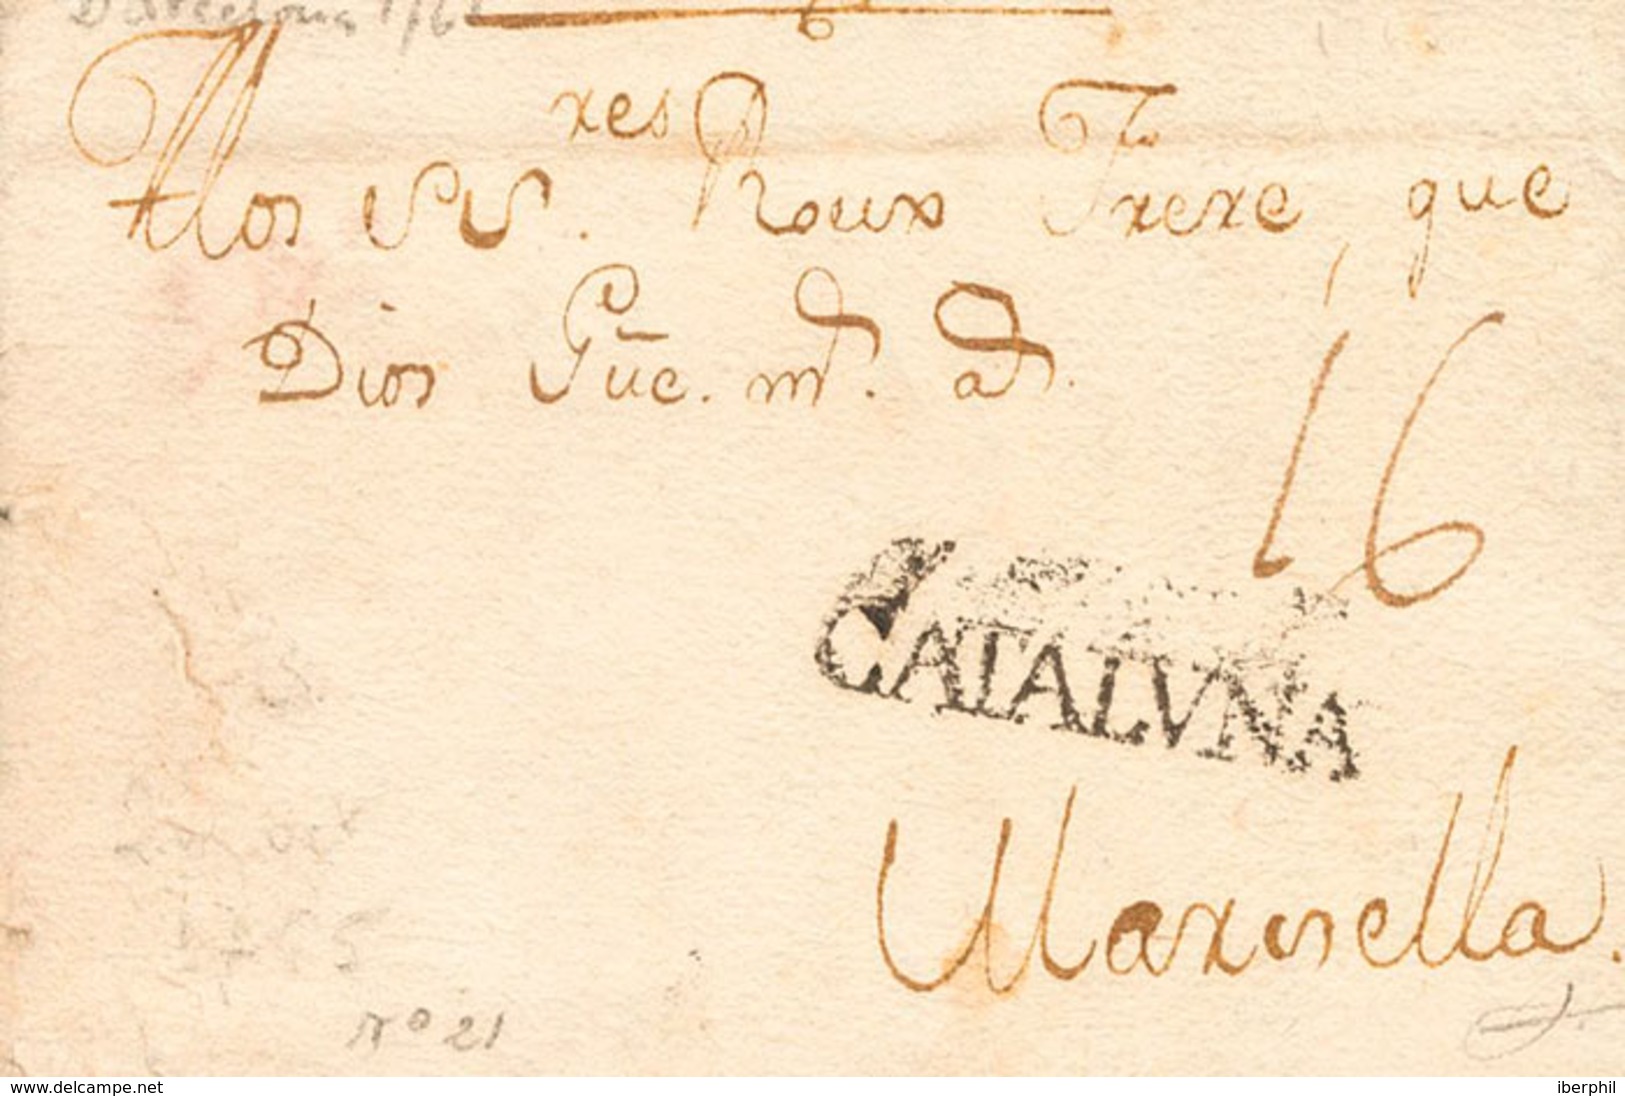 Barcelona 176
Alos SS.res Roux Frere, que
Dios Gũe. m.s a.s
16
CATALVNA
Marsella.
1765
Nº 21
www.delcampe.net
iberphil